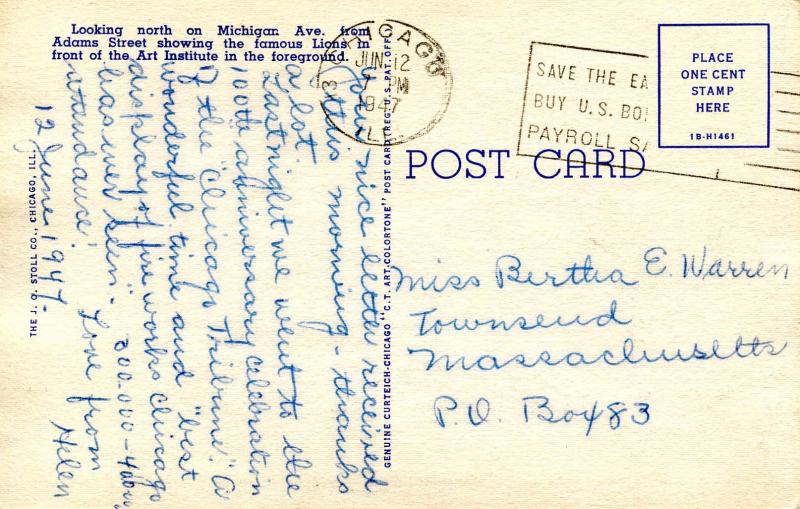 Looking north on Michigan Ave. from
Adams Street showing the famous Lions in
front of the Art Institute in the foreground.
CHICAGO
3
JUN 12
7 PM
1947
ILL.
SAVE THE EA
BUY U.S. BO
PAYROLL SA
PLACE
ONE CENT
STAMP
HERE
1B-H1461
POST CARD
Your nice letter received
this morning - thanks
a lot.
Last night we went to the
100th anniversary celebration
of the "Chicago Tribune". A
wonderful time and "best
display of fire works Chicago
has ever seen." 300.000 - 400.000
attendance.
Love from
Helen
12 June 1947.
Miss Bertha E. Warren
Townsend
Massachusetts
P.O. Box 483
THE J. O. STOLL CO., CHICAGO, ILL.
GENUINE CURTEICH-CHICAGO "C.T. ART-COLORTONE" POST CARD (REG. U.S. PAT. OFF.)